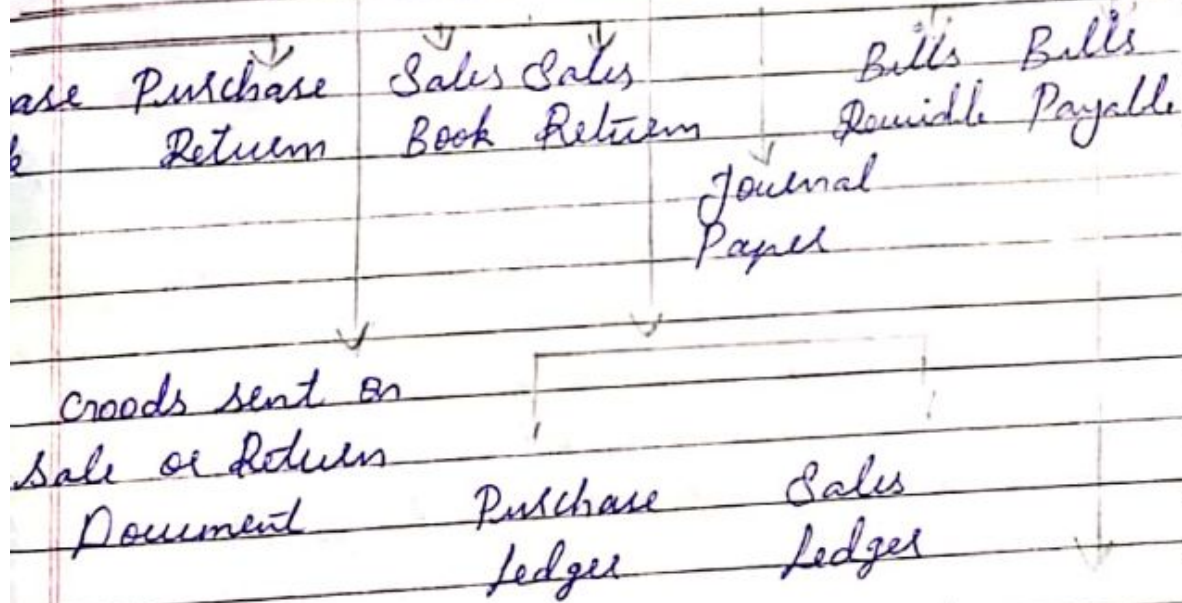 ase Purchase Sales Sales Bills Bills
k Return Book Return Receivable Payable
Journal
Paper
Goods sent on
Sale or Return
Document Purchase Sales
Ledger Ledger